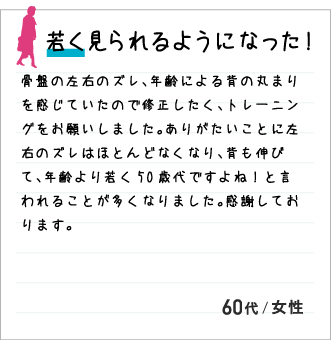 若く見られるようになった！
骨盤の左右のズレ、年齢による背の丸まり
を感じていたので修正したく、トレーニン
グをお願いしました。ありがたいことに左
右のズレはほとんどなくなり、背も伸び
て、年齢より若く50歳代ですよね！と言
われることが多くなりました。感謝してお
ります。
60代/女性